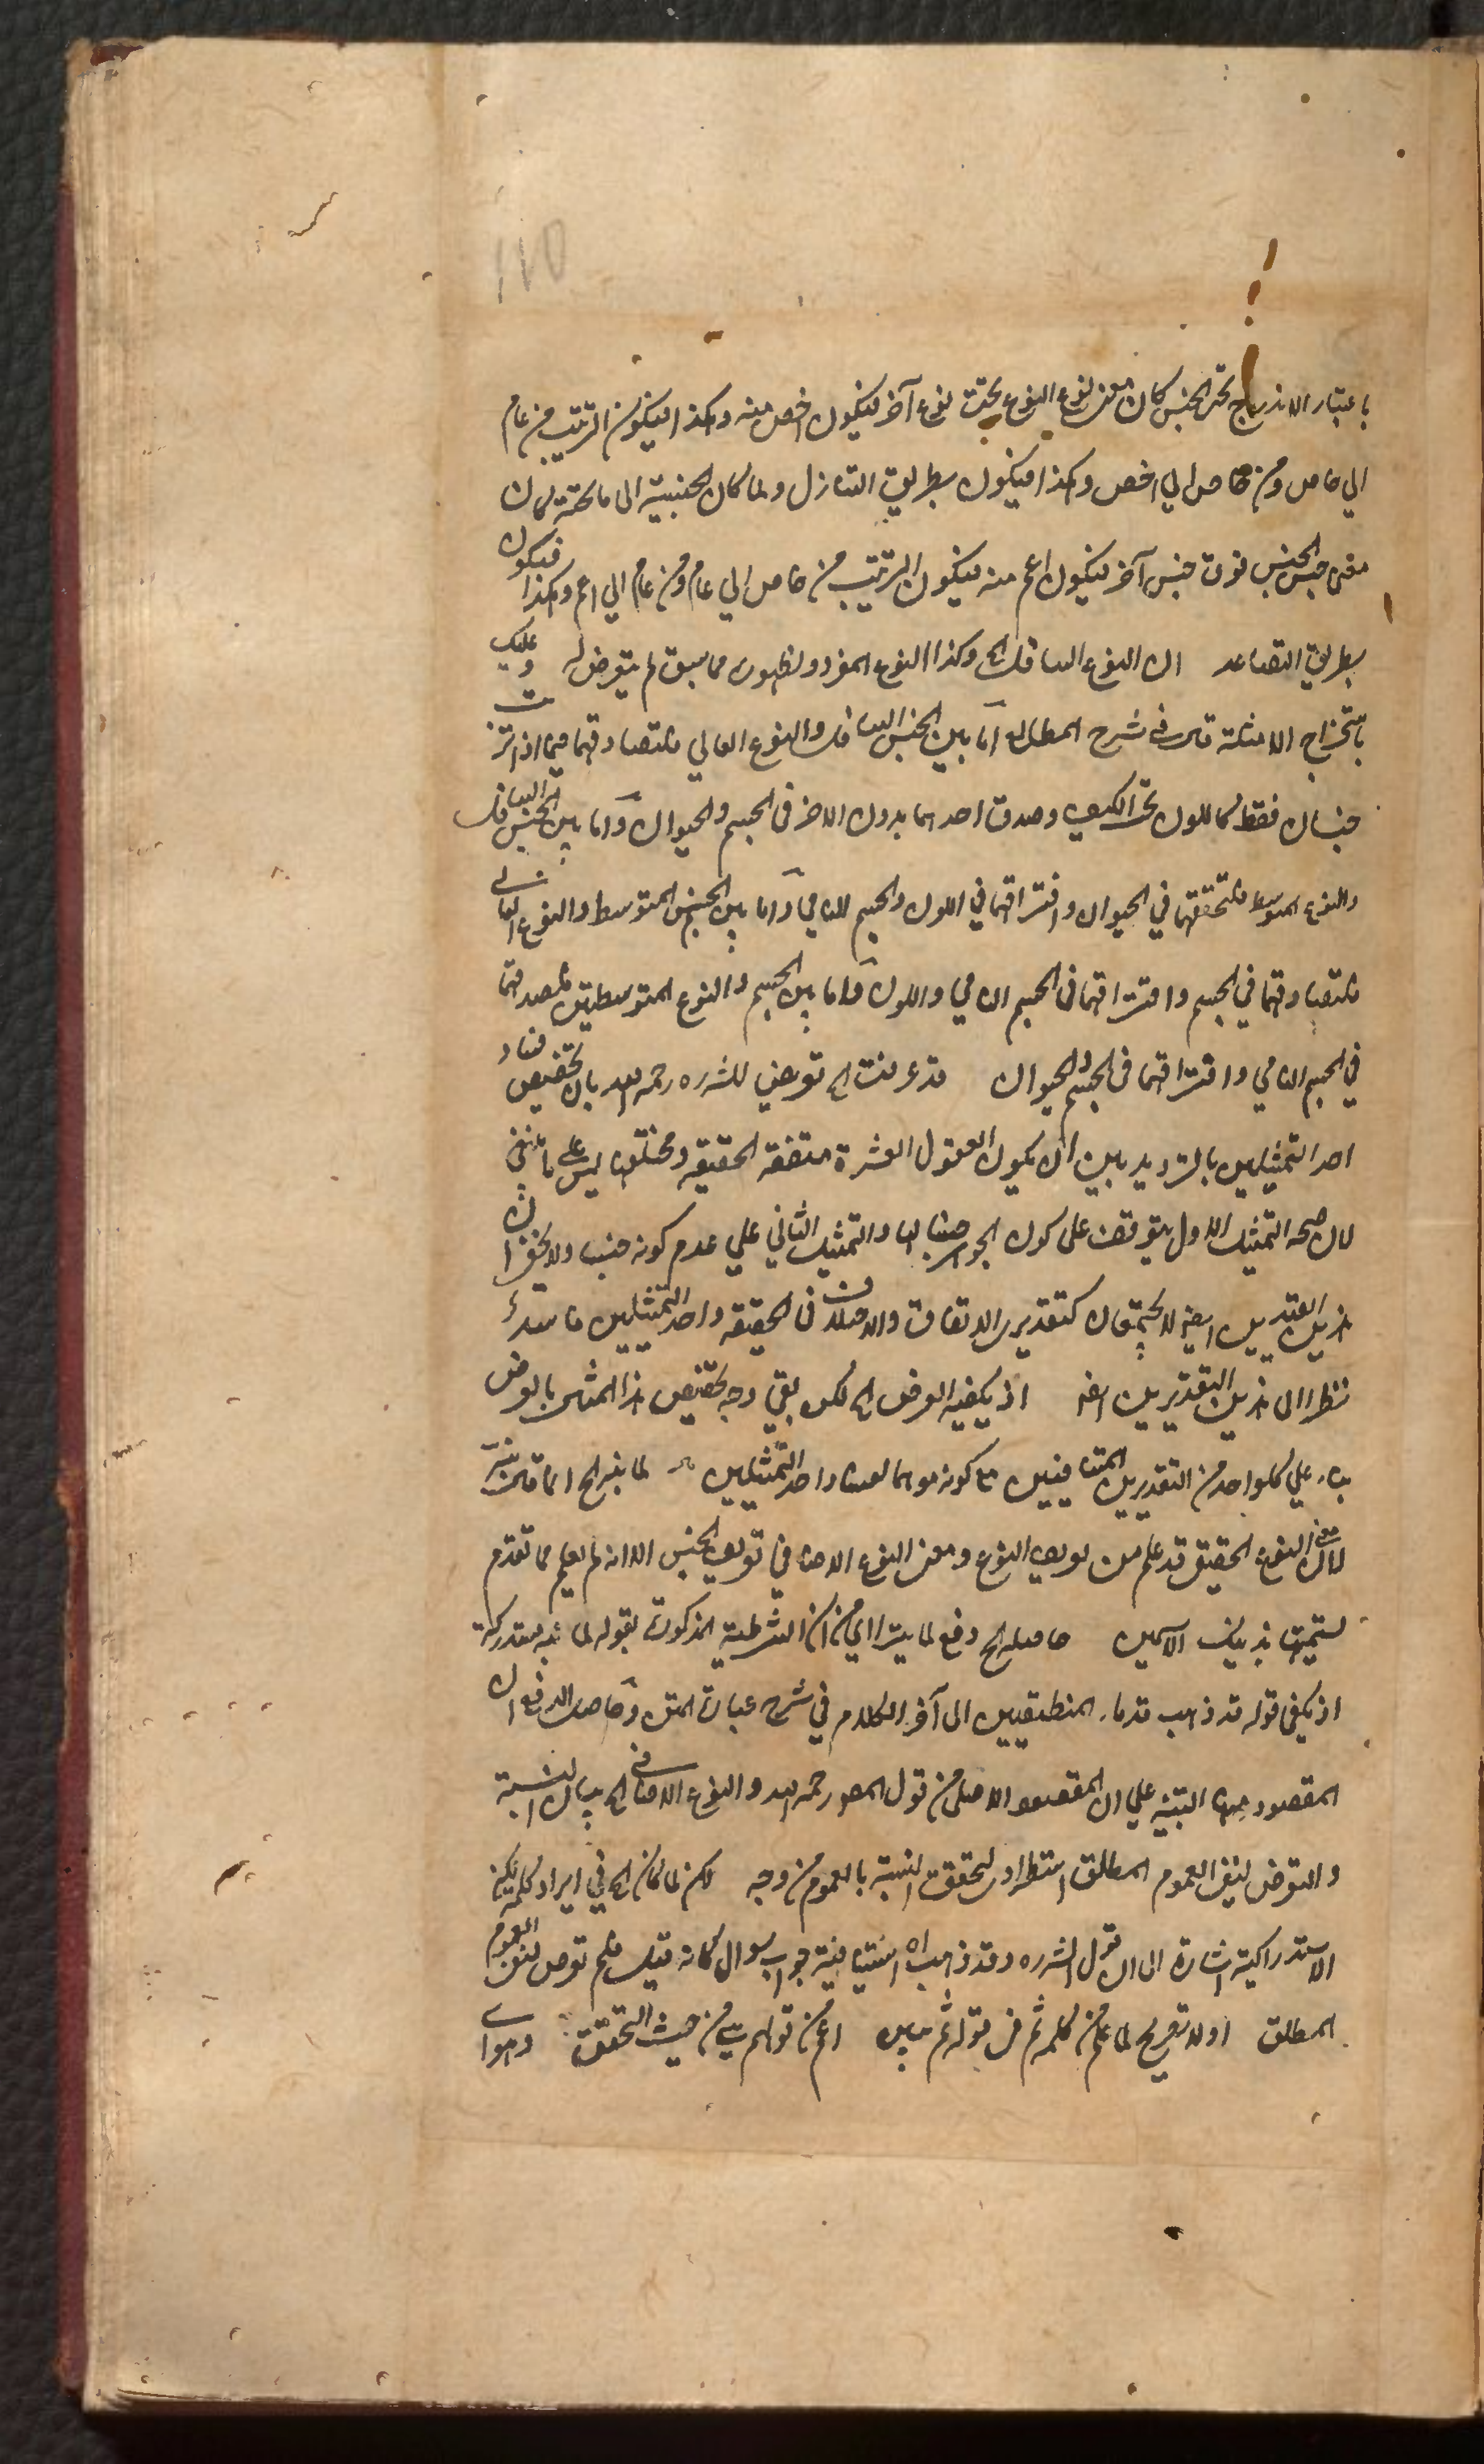 ١١٥
باعتبار الاندراج تحت الجنس كان معنى نوع النوع تحت نوع آخر ليكون اخص منه وهكذا ليكون الترتيب من عام
الي خاص ومن خاص الي اخص وهكذا فيكون بطريق التنازل ولما كان الجنسية الى ما تحته كان
معنى جنس الجنس فوق جنس آخر ليكون اعم منه ليكون الترتيب من خاص الي عام ومن عام الي اعم وهكذا فيكون
بطريق التصاعد ان النوع السافل الخ وكذا النوع المفرد ولظهوره مما سبق لم يتعرض له وعليك
باستخراج الامثلة قال في شرح المطالع اما بين الجنس السافل والنوع العالي فلتصادقهما فيما اذا ترتب
جنسان فقط كاللون تحت الكيف وصدق احدهما بدون الاخر في الجسم والحيوان واما بين الجنس السافل
والنوع المتوسط فلتحققهما في الحيوان وافتراقهما في اللون والجسم النامي واما بين الجنس المتوسط والنوع العالي
فلتصادقهما في الجسم وافتراقهما في الجسم النامي واللون واما بين الجسم والنوع المتوسطين فلصدقهما
في الجسم النامي وافتراقهما في الجسم والحيوان قد عرفت الخ تعريض للشرره رحمه الله بان تخصيص فساد
احد التمثيلين بالترديد بين ان يكون العقول العشرة متفقة الحقيقة ومختلفها ليس على ما ينبغي
لان صحة التمثيل الاول يتوقف على كون الجوهر جنسا لها والتمثيل الثاني علي عدم كونه جنسا ولا يخفى ان
هذين التقديرين ايضا لا يجتمعان كتقديري الاتفاق والاختلاف في الحقيقة واحد التمثيلين فاسد
نظرا الى هذين التقديرين ايضا اذ يكفيه الفرض الخ لكن بقي وجه تخصيص هذا المثال بالفرض
بناء علي كل واحد من التقديرين المتنافيين مع كونه موهما لفساد احد التمثيلين لما نبه الخ انما قال نبه
لان معنى النوع الحقيقي قد علم من تعريف النوع ومعنى النوع الاضافي في تعريف الجنس الا انه لم يعلم مما تقدم
تسميتهما بذينك الاسمين حاصله الخ دفع لما يتراءى من ان الشرطية المذكورة بقوله لما نبه مستدركة
اذ يكفي قوله قد ذهب قدماء المنطقيين الى آخر الكلام في شرح عبارة المتن وحاصل الدفع ان
المقصود منها التنبيه علي ان المقصود الاصلي من قول المصر رحمه الله والنوع الاضافي الخ بيان النسبة
والتعرض لنفي العموم المطلق استطرادي لتحقق النسبة بالعموم من وجه لكن لما كان الخ في ايراد كلمة لكن
الاستدراكية اشارة الى ان قول الشرره وقد ذهب اه استينافية جواب سوال كانه قيل فلم تعرض لنفي العموم
المطلق اولا تصريح لما علم من كلمة ثم في قوله ثم بين اعم من قولهم شي من حيث التحقق وهواي